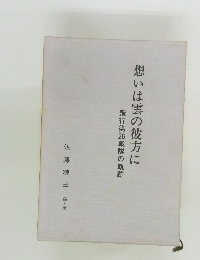 想いは雲の彼方に
飛行第26戦隊の軌跡
佐藤